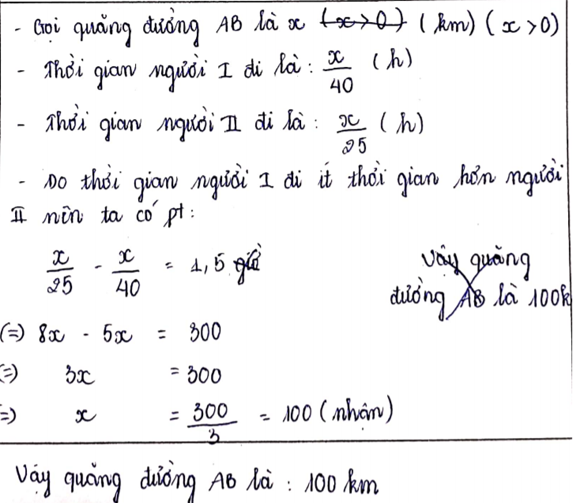 - Gọi quãng đường AB là x (x>0) (km) (x>0)
- Thời gian người I đi là: x/40 (h)
- Thời gian người II đi là: x/25 (h)
- Do thời gian người I đi ít thời gian hơn người
II nên ta có pt:
x/25 - x/40 = 1,5 giờ
(=) 8x - 5x = 300
(=) 3x = 300
(=) x = 300/3 = 100 (nhận)
Vậy quãng
đường AB là 100k
Vậy quãng đường AB là : 100 km